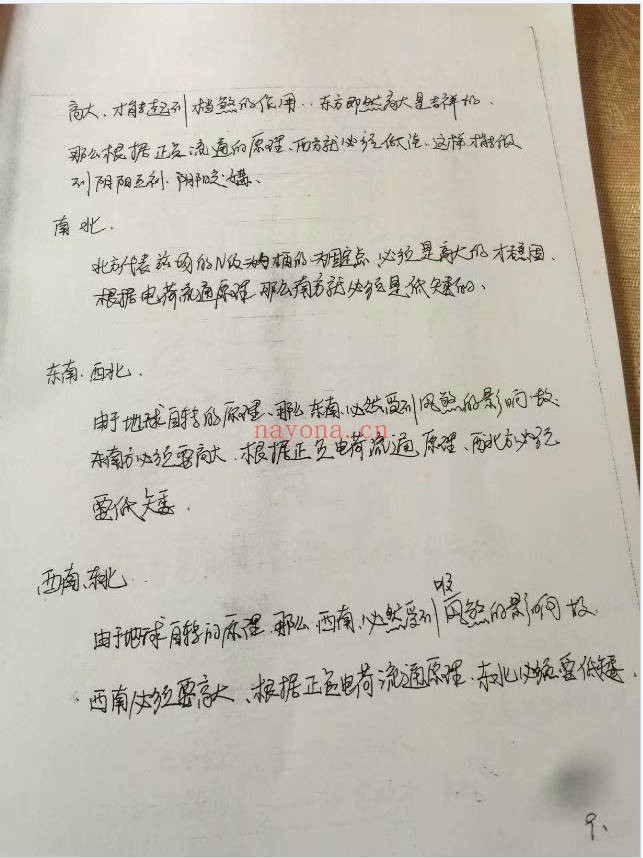 高大、才能起到挡煞的作用..东方即然高大是吉祥的、
那么根据正负流通的原理、西方就必须低洼、这样才能做
到阴阳互利、阴阳交媾、
南北、
北方代表磁场的N极为固定点 必须是高大的才稳固、
根据电荷流通原理 那么南方就必须是低矮的、
东南、西北、
由于地球自转的原理、那么东南必然受到风煞的影响、故
东南方必须要高大、根据正负电荷流通原理、西北方必须
要低矮.
nayona.cn
西南、东北、
由于地球自转的原理、那么西南、必然受到吸风煞的影响 故
西南必须要高大、根据正负电荷流通原理、东北必须要低矮、
9、